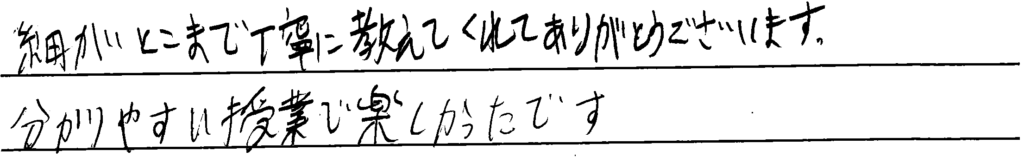 細かいとこまで丁寧に教えてくれてありがとうございます。
分かりやすい授業で楽しかったです